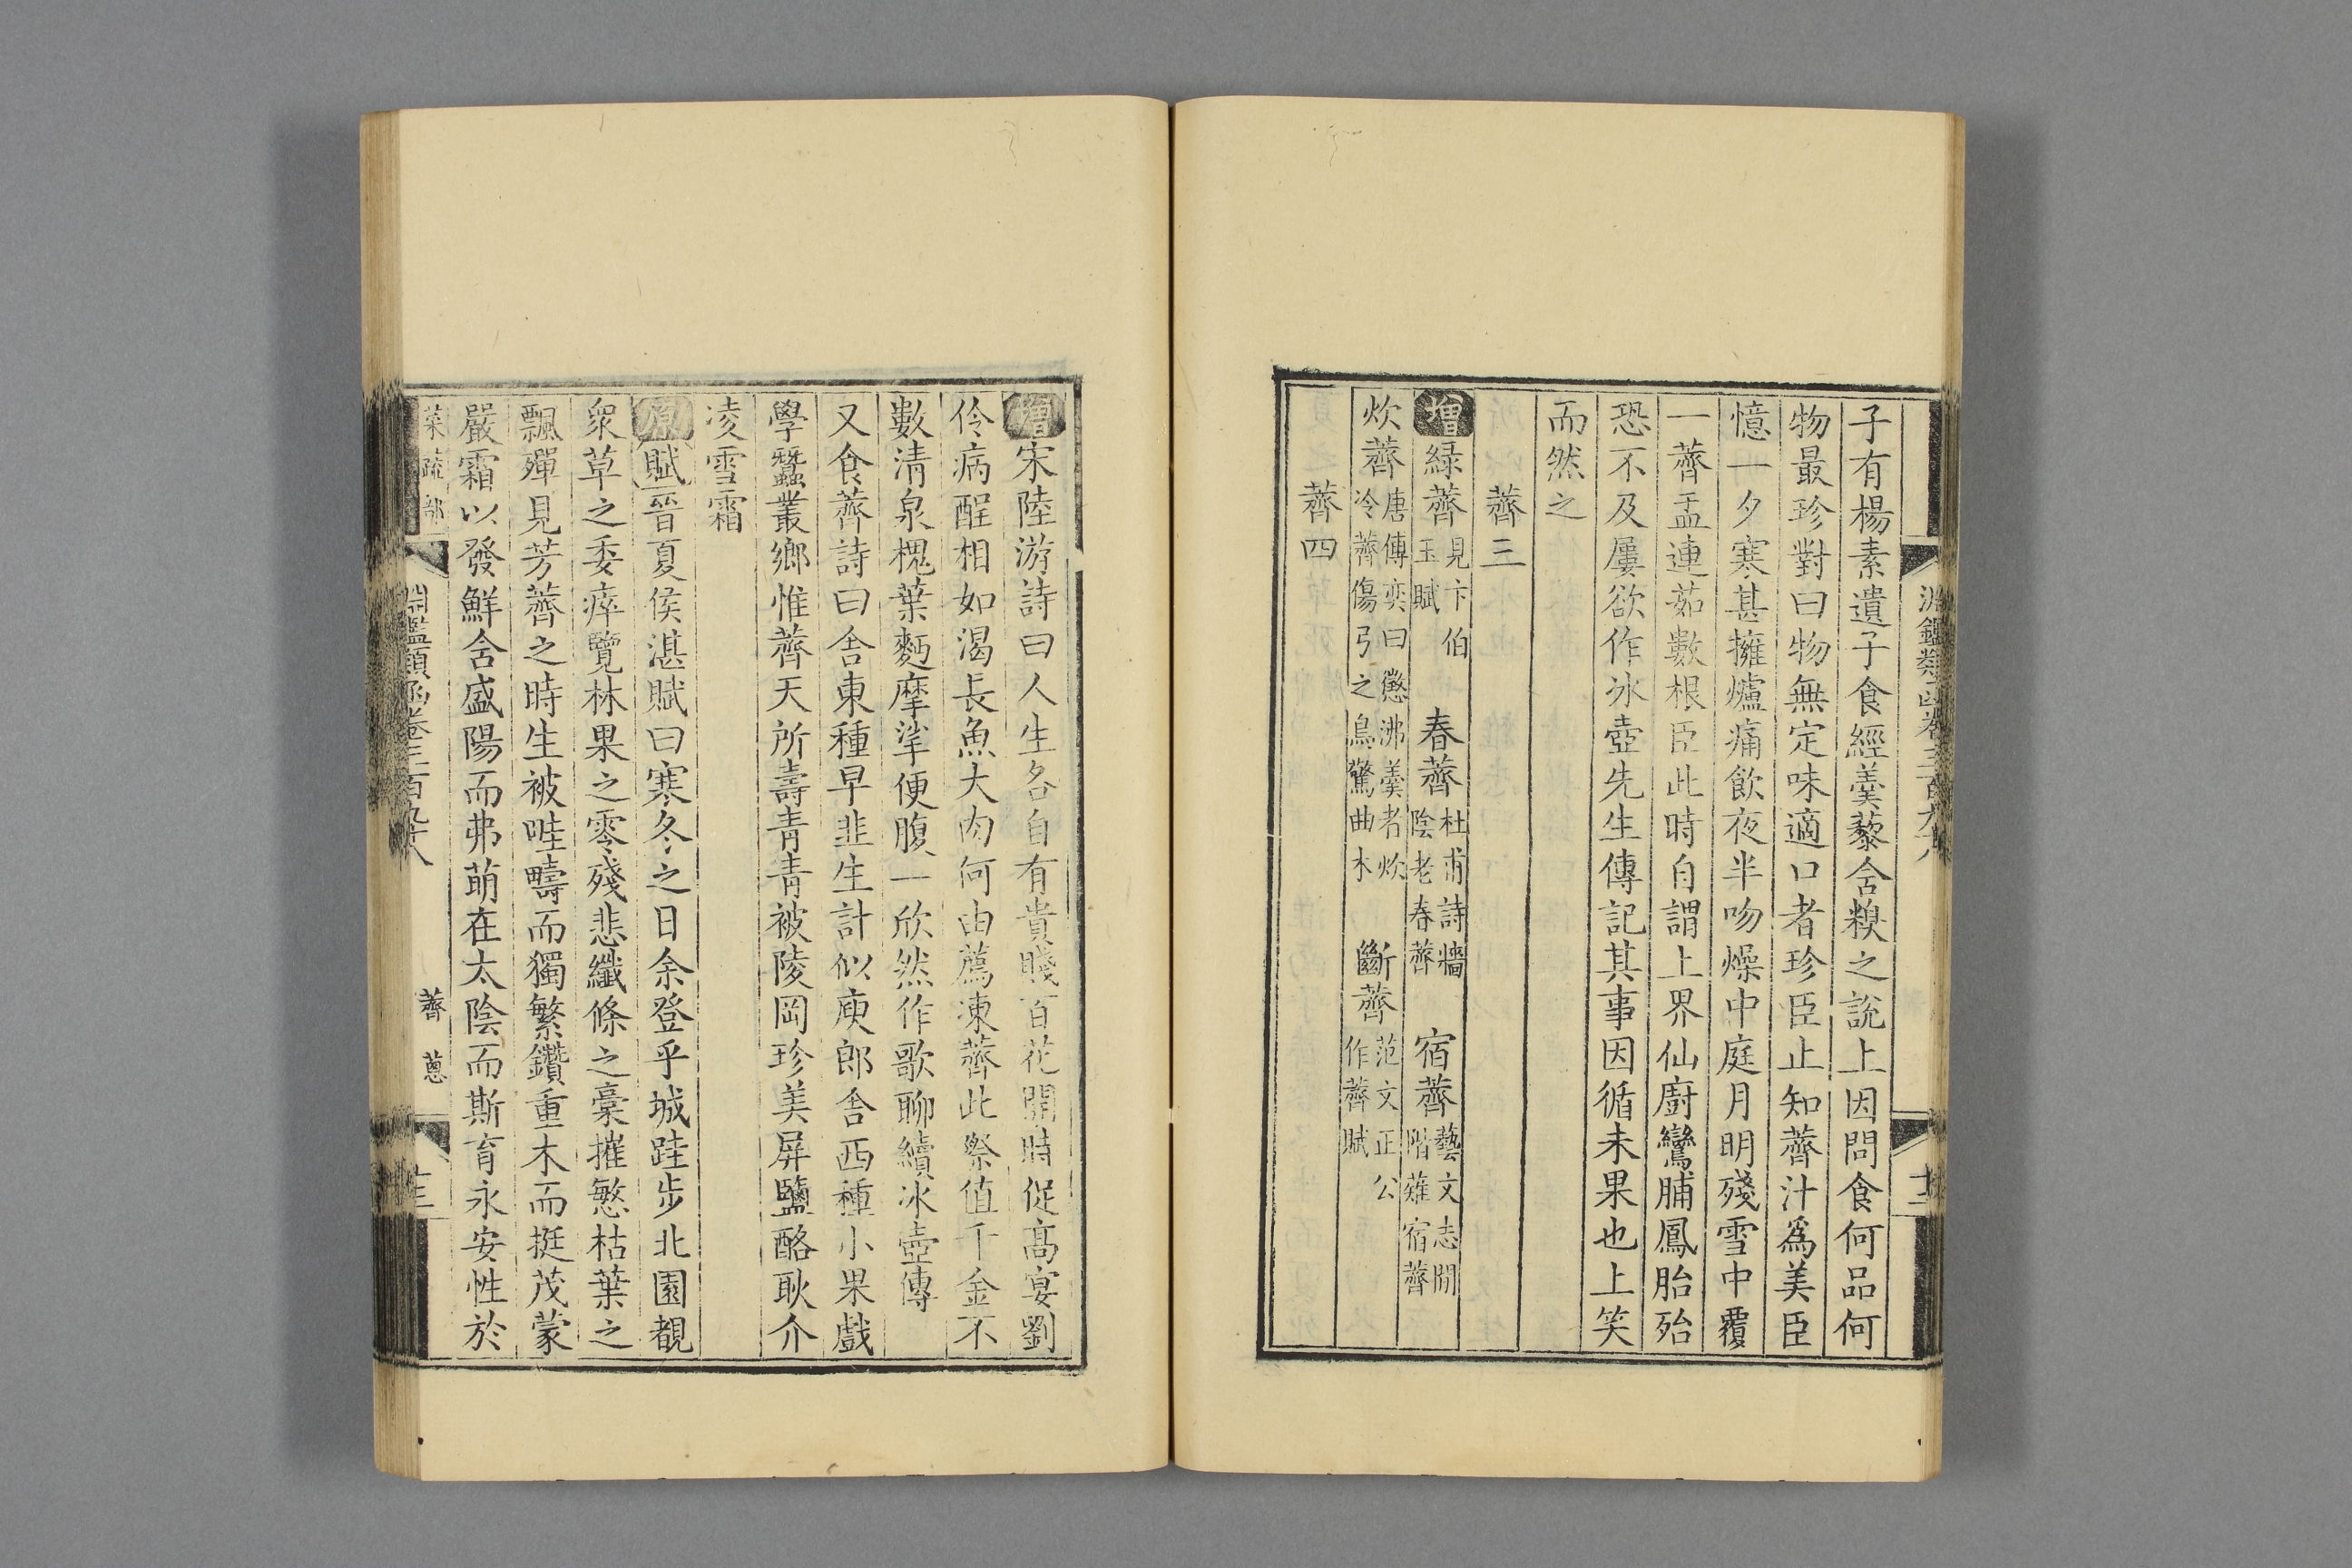 子有楊素遺子食經羹藜含糗之說上因問食何品何
物最珍對曰物無定味適口者珍臣止知薺汁爲美臣
憶一夕寒甚擁爐痛飲夜半吻燥中庭月明殘雪中覆
一薺盂連茹數根臣此時自謂上界仙廚鸞脯鳳胎殆
恐不及屢欲作冰壺先生傳記其事因循未果也上笑
而然之
薺三
增綠薺見卞伯玉賦 春薺杜甫詩牆陰老春薺 宿薺藝文志閒階薙宿薺
炊薺唐傅奕曰懲沸羹者炊冷薺傷弓之鳥驚曲木 斷薺范文正公作薺賦
薺四
增宋陸游詩曰人生各自有貴賤百花開時促高宴劉
伶病酲相如渴長魚大肉何由薦凍薺此際值千金不
數清泉槐葉麪摩挲便腹一欣然作歌聊續冰壺傳
又食薺詩曰舍東種早韭生計似庾郎舍西種小果戲
學蠶叢鄉惟薺天所壽青青被陵岡珍美屏鹽酪耿介
凌雪霜
原賦晉夏侯湛賦曰寒冬之日余登乎城跬步北園覩
衆草之委瘁覽林果之零殘悲纖條之槀摧慜枯葉之
飄殫見芳薺之時生被畦疇而獨繁鑽重木而挺茂蒙
嚴霜以發鮮舍盛陽而弗萌在太陰而斯育永安性於
菜蔬部
淵鑑類函卷三百九十八
薺 蔥
十三